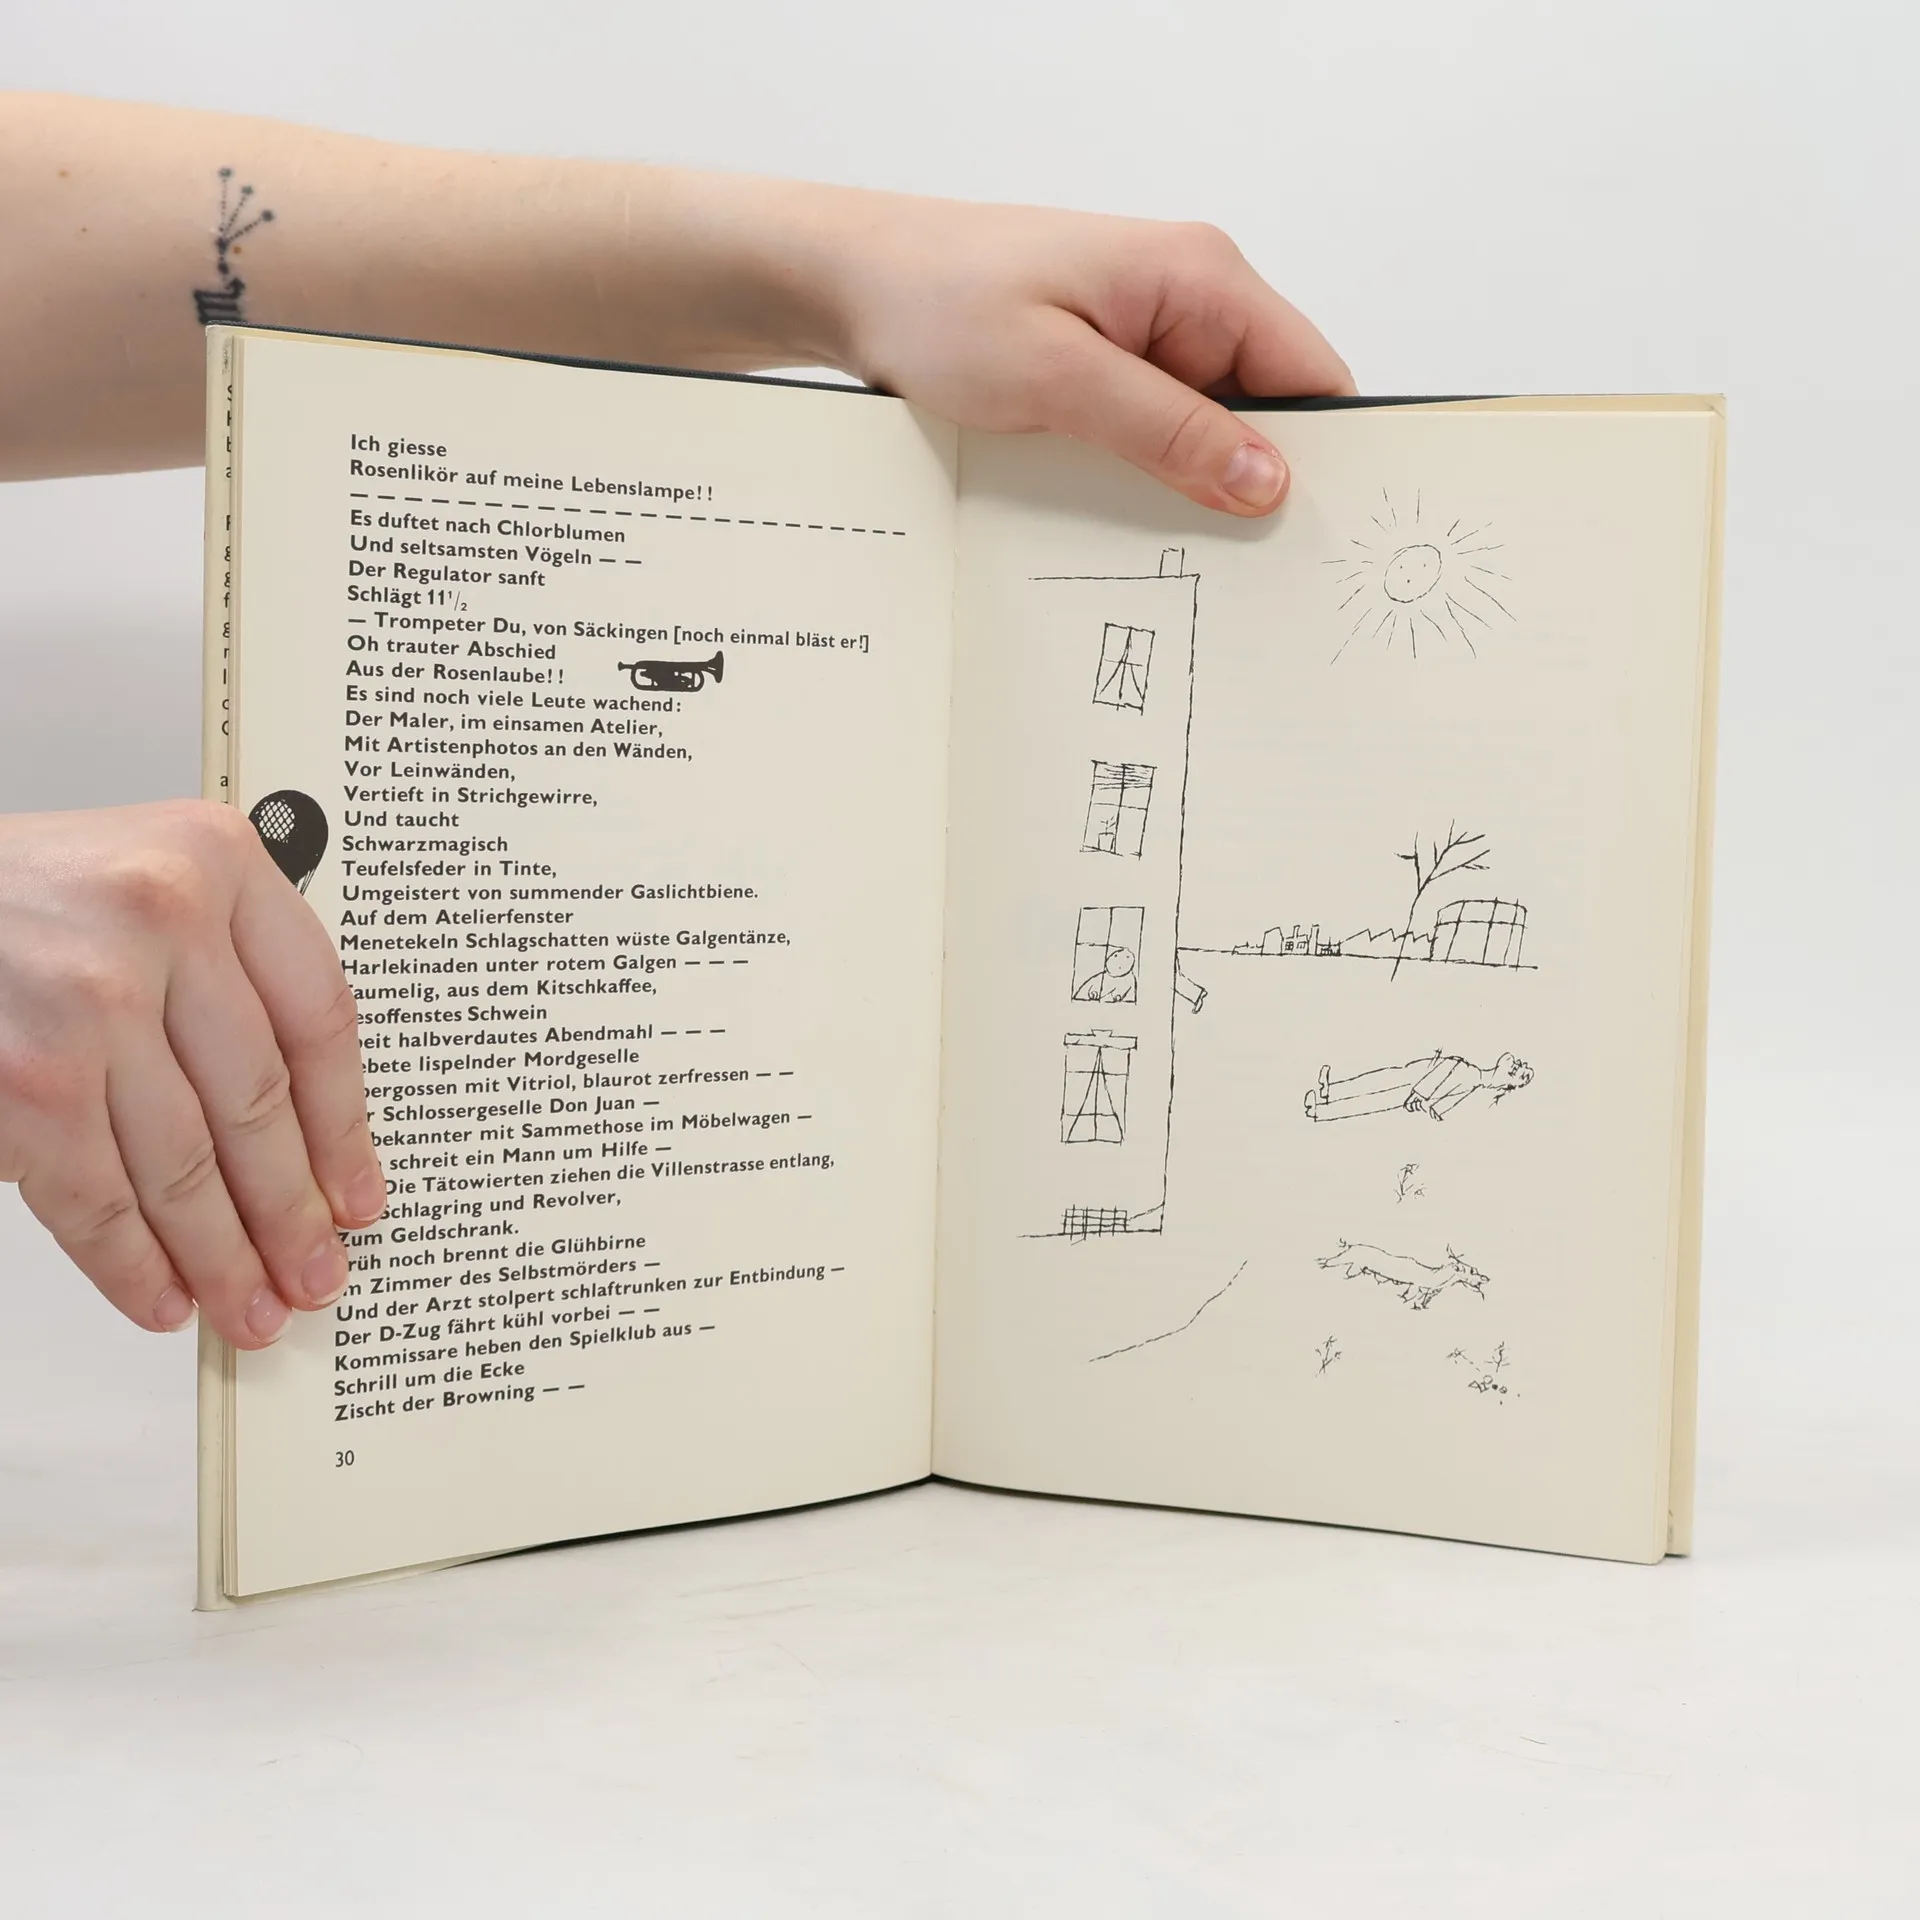 Ich giesse
Rosenlikör auf meine Lebenslampe!!
— — — — — — — — — — — — — — — — — — — — —
Es duftet nach Chlorblumen
Und seltsamsten Vögeln — —
Der Regulator sanft
Schlägt 11¹/₂
— Trompeter Du, von Säckingen [noch einmal bläst er!]
Oh trauter Abschied
Aus der Rosenlaube!!
Es sind noch viele Leute wachend:
Der Maler, im einsamen Atelier,
Mit Artistenphotos an den Wänden,
Vor Leinwänden,
Vertieft in Strichgewirre,
Und taucht
Schwarzmagisch
Teufelsfeder in Tinte,
Umgeistert von summender Gaslichtbiene.
Auf dem Atelierfenster
Menetekeln Schlagschatten wüste Galgentänze,
Harlekinaden unter rotem Galgen — — —
aus dem Kitschkaffee,
Schwein
halbverdautes Abendmahl — — —
lispelnder Mordgeselle
mit Vitriol, blaurot zerfressen — —
Schlossergeselle Don Juan —
mit Sammethose im Möbelwagen —
schreit ein Mann um Hilfe —
Die Tätowierten ziehen die Villenstrasse entlang,
Schlagring und Revolver,
Zum Geldschrank.
noch brennt die Glühbirne
Zimmer des Selbstmörders —
Und der Arzt stolpert schlaftrunken zur Entbindung —
Der D-Zug fährt kühl vorbei — —
Kommissare heben den Spielklub aus —
Schrill um die Ecke
Zischt der Browning — —
30